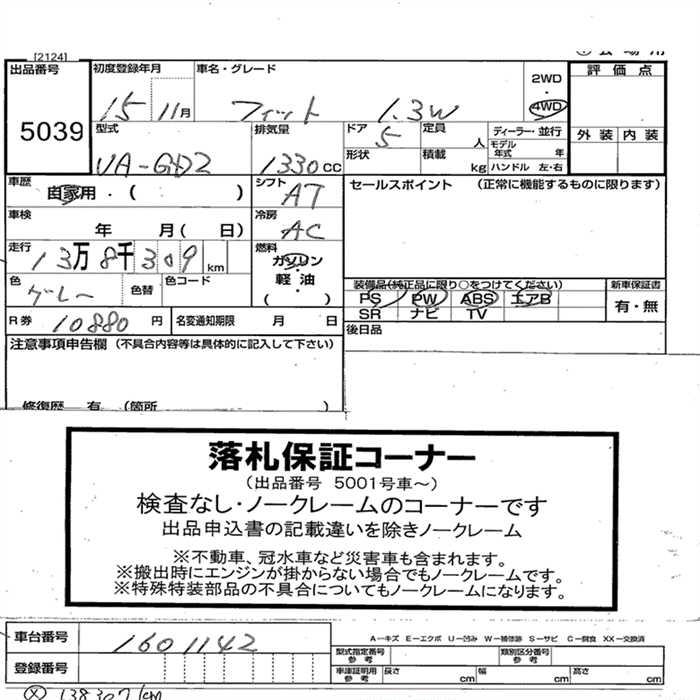 [2124]
出品番号 5039
初度登録年月 15 11月
車名・グレード フィット 1.3W
2WD ・ 4WD
評価点
外装 内装
型式 UA-GD2
排気量 1330cc
ドア 5
定員 人
形状
積載 kg
ディーラー・並行
モデル年式 年
ハンドル 左・右
車歴 自家用・( )
シフト AT
セールスポイント (正常に機能するものに限ります)
車検 年 月( 日)
冷房 AC
走行 13万8千309km
燃料 ガソリン・軽油 ( )
色 グレー
色替
色コード
装備品(純正品に限り○をつけてください) 新車保証書
PS PW ABS エアB 有・無
SR ナビ TV
R券 10880円
名変通知期限 月 日
後日品
注意事項申告欄 (不具合内容等は具体的に記入して下さい)
修復歴 有 (箇所 )
落札保証コーナー
(出品番号 5001号車~)
検査なし・ノークレームのコーナーです
出品申込書の記載違いを除きノークレーム
※不動車、冠水車など災害車も含まれます。
※搬出時にエンジンが掛からない場合でもノークレームです。
※特殊特装部品の不具合についてもノークレームになります。
車台番号 1601142
A-キズ E-エクボ U-凹み W-補修跡 S-サビ C-腐食 XX-交換済
型式指定番号 参考
類別区分番号 参考
登録番号
車庫証明用 参考 長さ cm 幅 cm 高さ cm
138307km